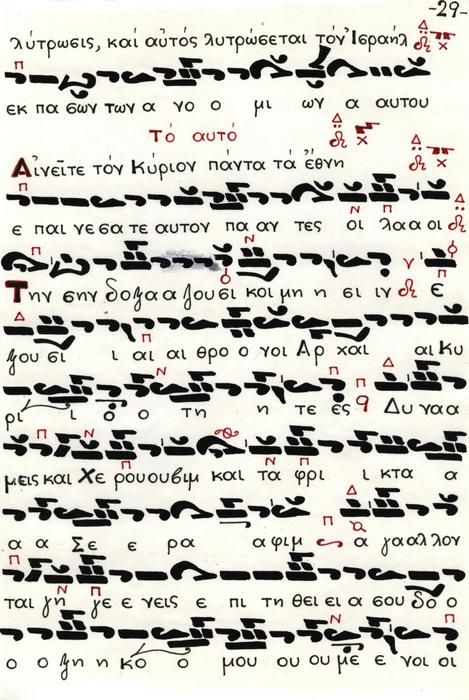 -29-
λύτρωσις, καί αὐτός λυτρώσεται τόν Ἰσραήλ
εκ πα σων των α νο ο μι ων α αυτου
Τό αυτό
Αἰνεῖτε τόν Κύριον πάντα τά ἔθνη
ε παι νε σα τε αυτον πα αν τες οι λαα οι
Την σην δοξα α ζου σι κοι μη η σι ιν Ε
ξου σι ι αι αι θρο ο νοι Αρ χαι αι Κυ
ρι ι ο ο τη η τε ες Δυ ναα
μεις και Χε ρουουβιμ και τα φρι ι κτα α
α α Σε ε ρα αφιμ α γααλλον
ται γη γε ε νεις ε πι τη θει ει α σου δο ο
ο ο ξη η κο ο μου ου ου με ε νοι οι